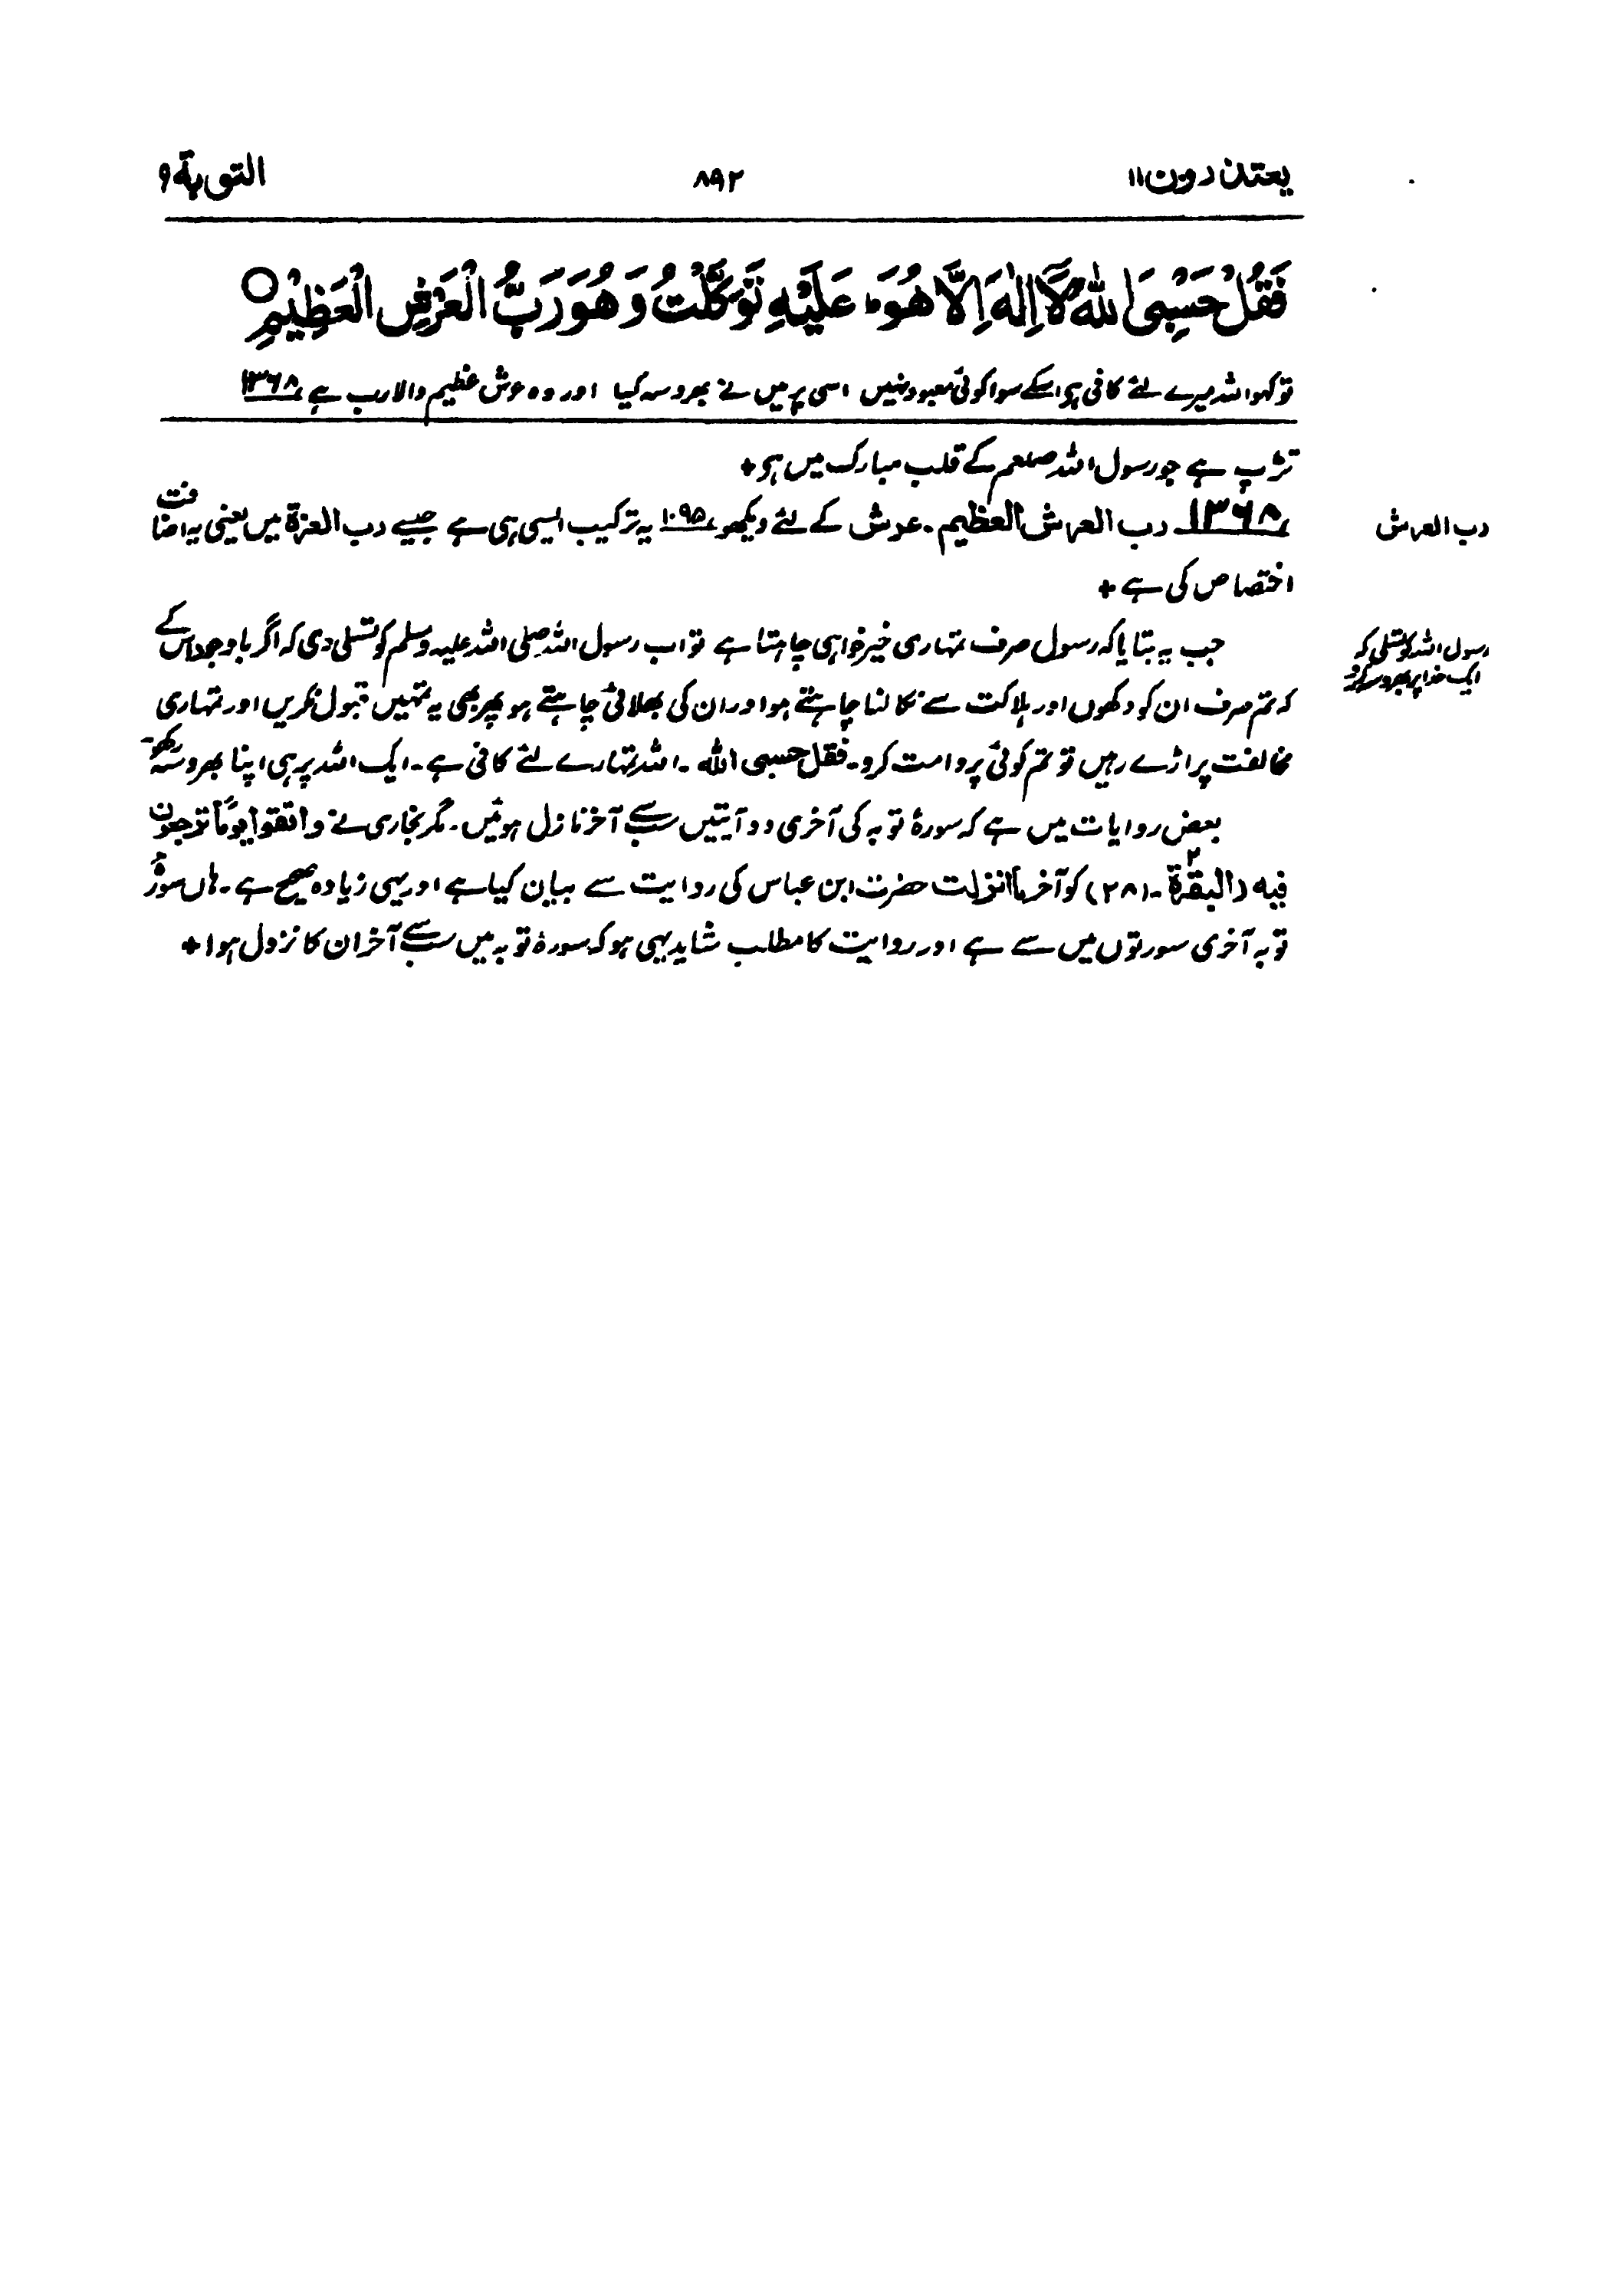 یعتذرون ۱۱
۸۹۲
التوبة ۹
فَقُلْ حَسْبِیَ اللّٰهُ لَاۤ اِلٰهَ اِلَّا هُوَ ؕ عَلَیْهِ تَوَكَّلْتُ وَ هُوَ رَبُّ الْعَرْشِ الْعَظِیْمِ ○
تو کہو اللہ میرے لئے کافی ہو اسکے سوا کوئی معبود نہیں اسی پر میں نے بھروسہ کیا اور وہ عرش عظیم والا رب ہے ۱۳۶۸
تڑپ ہے جو رسول اللہ صلعم کے قلب مبارک میں ہو +
رب العرش
۱۳۶۸ رب العرش العظیم ۔ عرش کے لئے دیکھو ۱۰۹۵ یہ ترکیب ایسی ہی ہے جیسے رب العزة میں یعنی یہ اضافت
اختصاص کی ہے +
رسول اللہ کو تسلی کہ
ایک خدا پر بھروسہ کرو
جب یہ بتایا کہ رسول صرف تمہاری خیر خواہی چاہتا ہے تو اب رسول اللہ صلی اللہ علیہ وسلم کو تسلی دی کہ اگر باوجود اس کے
کہ تم صرف ان کو دکھوں اور ہلاکت سے نکالنا چاہتے ہو اور ان کی بھلائی چاہتے ہو پھر بھی یہ تمہیں قبول نہ کریں اور تمہاری
مخالفت پر اڑے رہیں تو تم کوئی پروا مت کرو ۔ فقل حسبی اللہ ۔ اللہ تمہارے لئے کافی ہے ۔ ایک اللہ پر ہی اپنا بھروسہ رکھو ۔
بعض روایات میں ہے کہ سورۂ توبہ کی آخری دو آیتیں سب سے آخر نازل ہوئیں ۔ مگر بخاری نے واتقوا یوما ترجعون
فیہ (البقرة ۲ ۔ ۲۸۱) کو آخر ما انزلت حضرت ابن عباس کی روایت سے بیان کیا ہے اور یہی زیادہ صحیح ہے ۔ ہاں سورۂ
توبہ آخری سورتوں میں سے ہے اور روایت کا مطلب شاید یہی ہو کہ سورۂ توبہ میں سب سے آخر ان کا نزول ہوا +